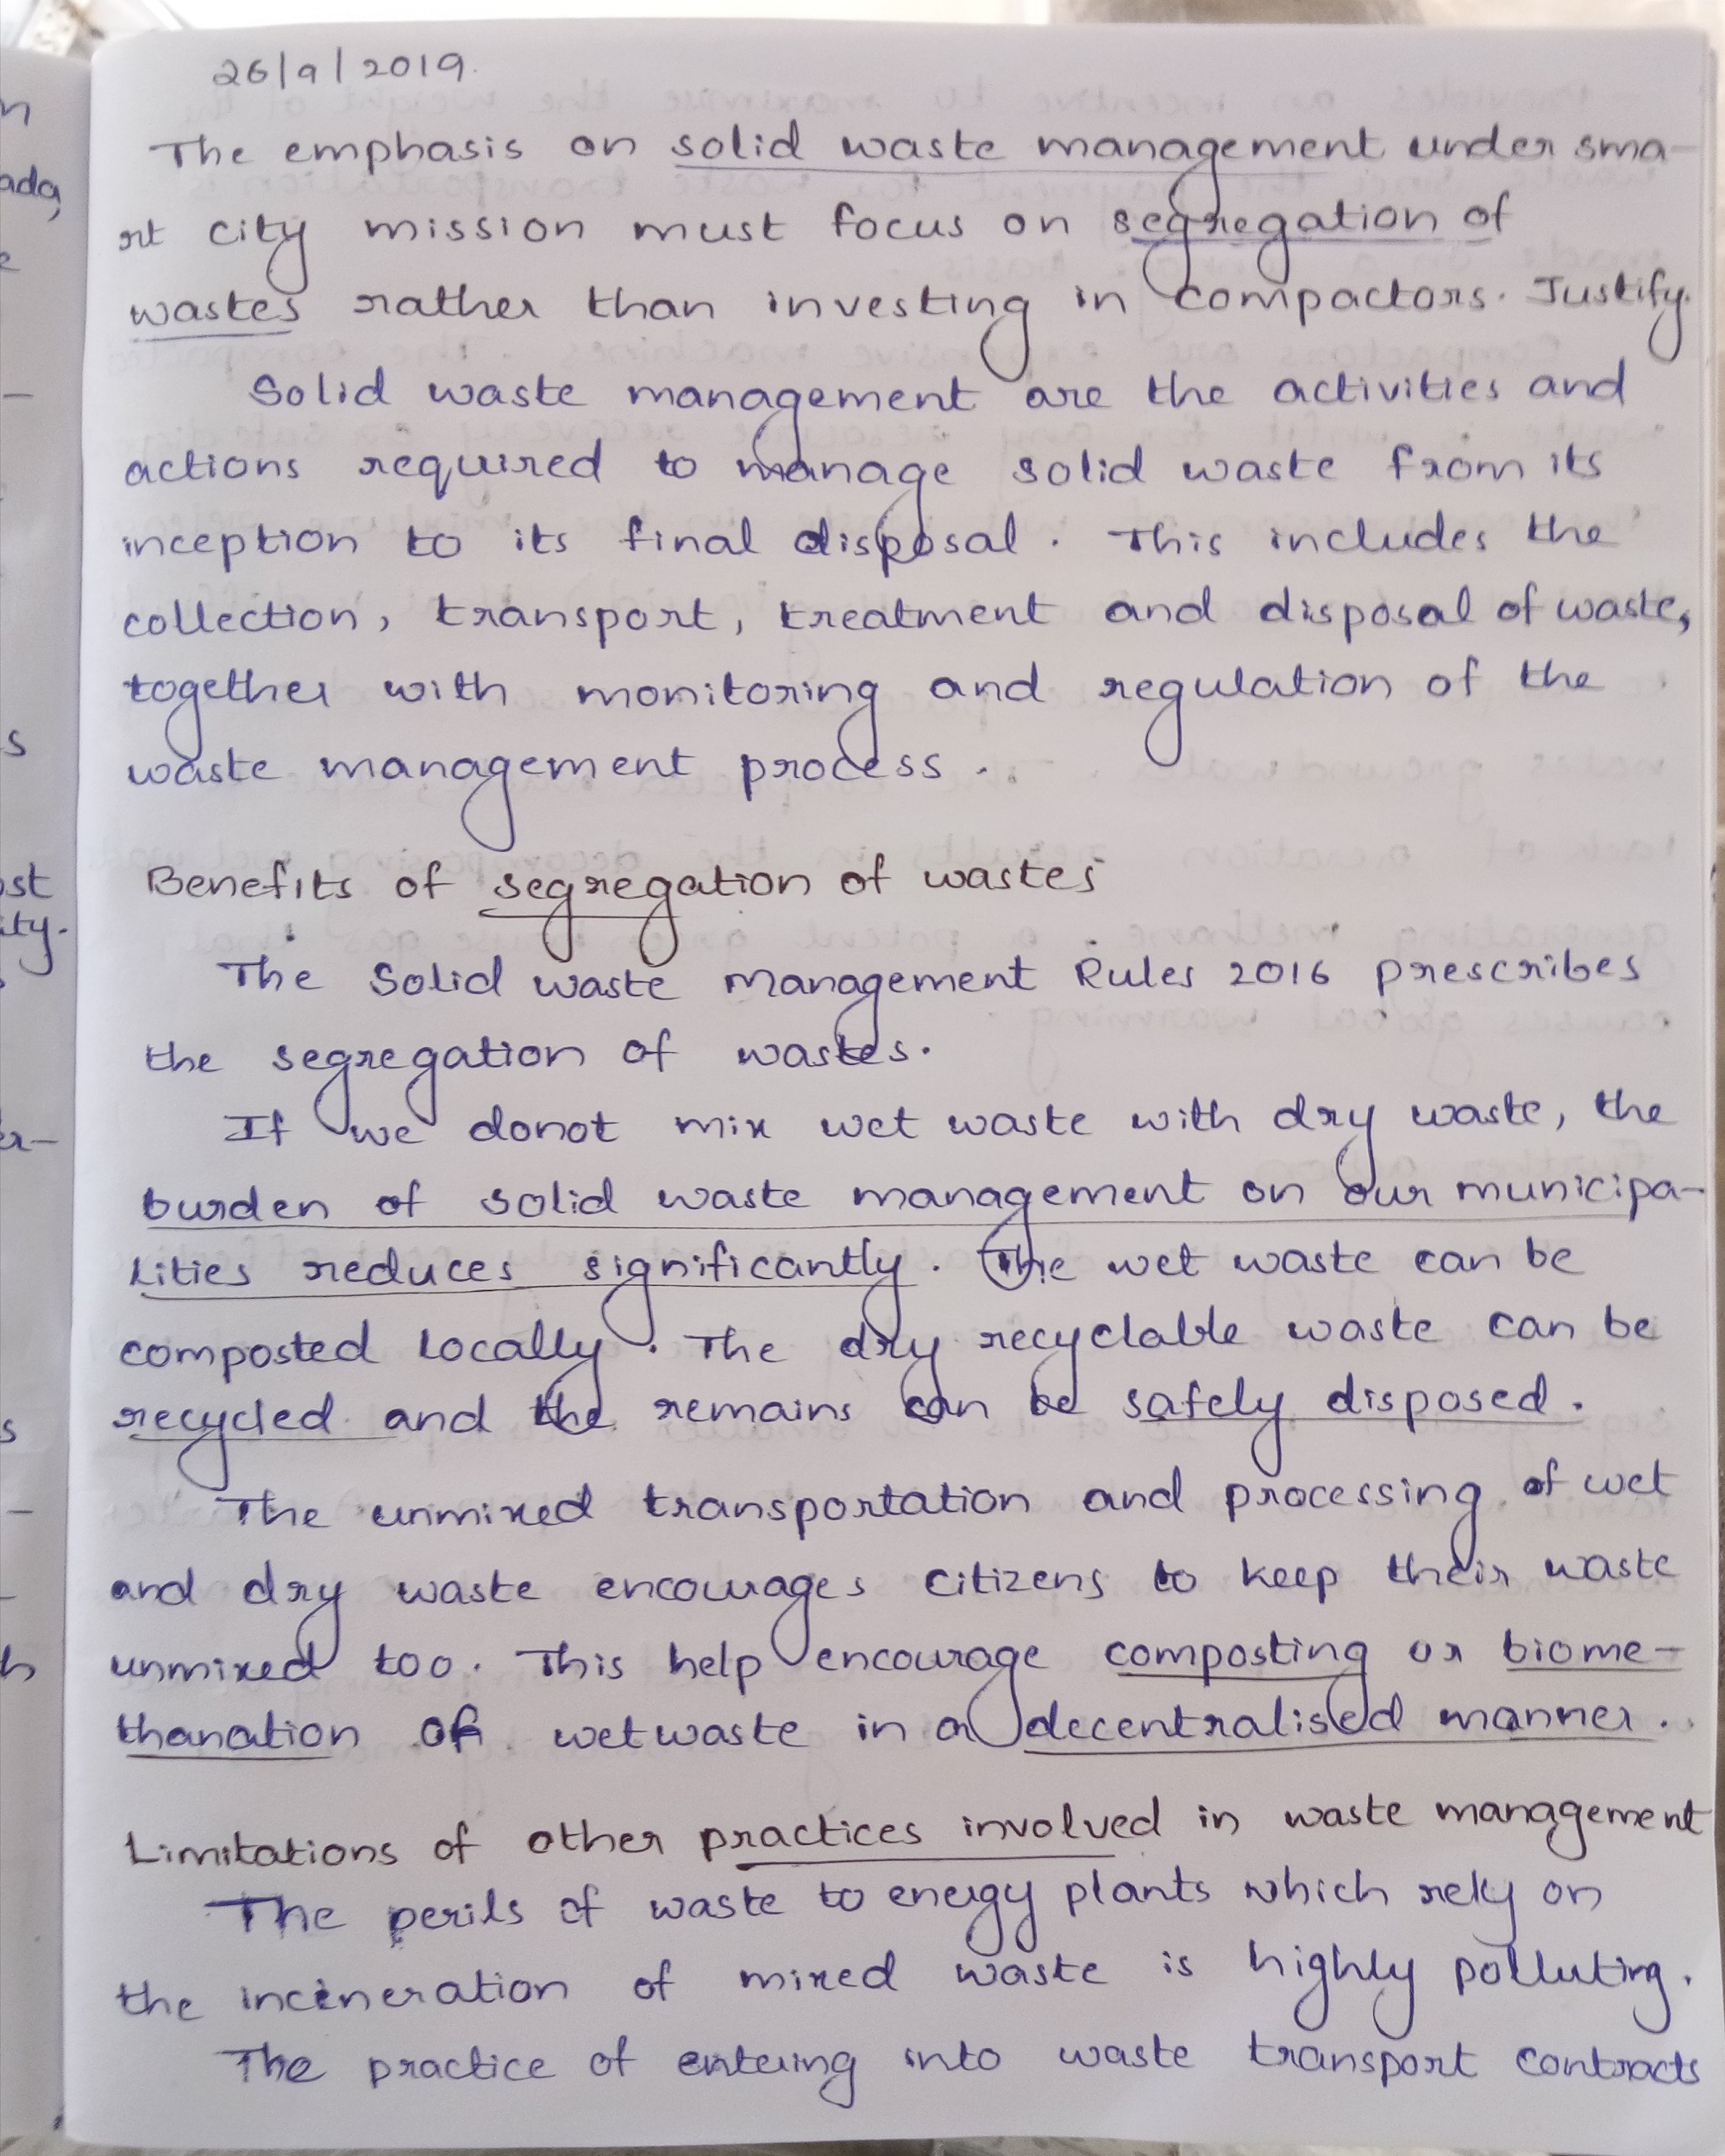 26/9/2019.
The emphasis on solid waste management under sma-
rt city mission must focus on segregation of
wastes rather than investing in compactors. Justify.
Solid waste management are the activities and
actions required to manage solid waste from its
inception to its final disposal. This includes the
collection, transport, treatment and disposal of waste,
together with monitoring and regulation of the
waste management process.
Benefits of segregation of wastes
The Solid waste Management Rules 2016 prescribes
the segregation of wastes.
If we donot mix wet waste with dry waste, the
burden of solid waste management on our municipa-
lities reduces significantly. The wet waste can be
composted locally. The dry recyclable waste can be
recycled and the remains can be safely disposed.
The unmixed transportation and processing of wet
and dry waste encourages citizens to keep their waste
unmixed too. This help encourage composting or biome-
thanation of wet waste in a decentralised manner.
Limitations of other practices involved in waste management
The perils of waste to energy plants which rely on
the incineration of mixed waste is highly polluting.
The practice of entering into waste transport contracts